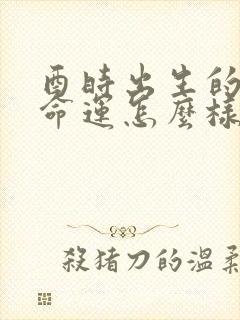 酉時出生的
命運怎麼樣
殺豬刀的溫柔